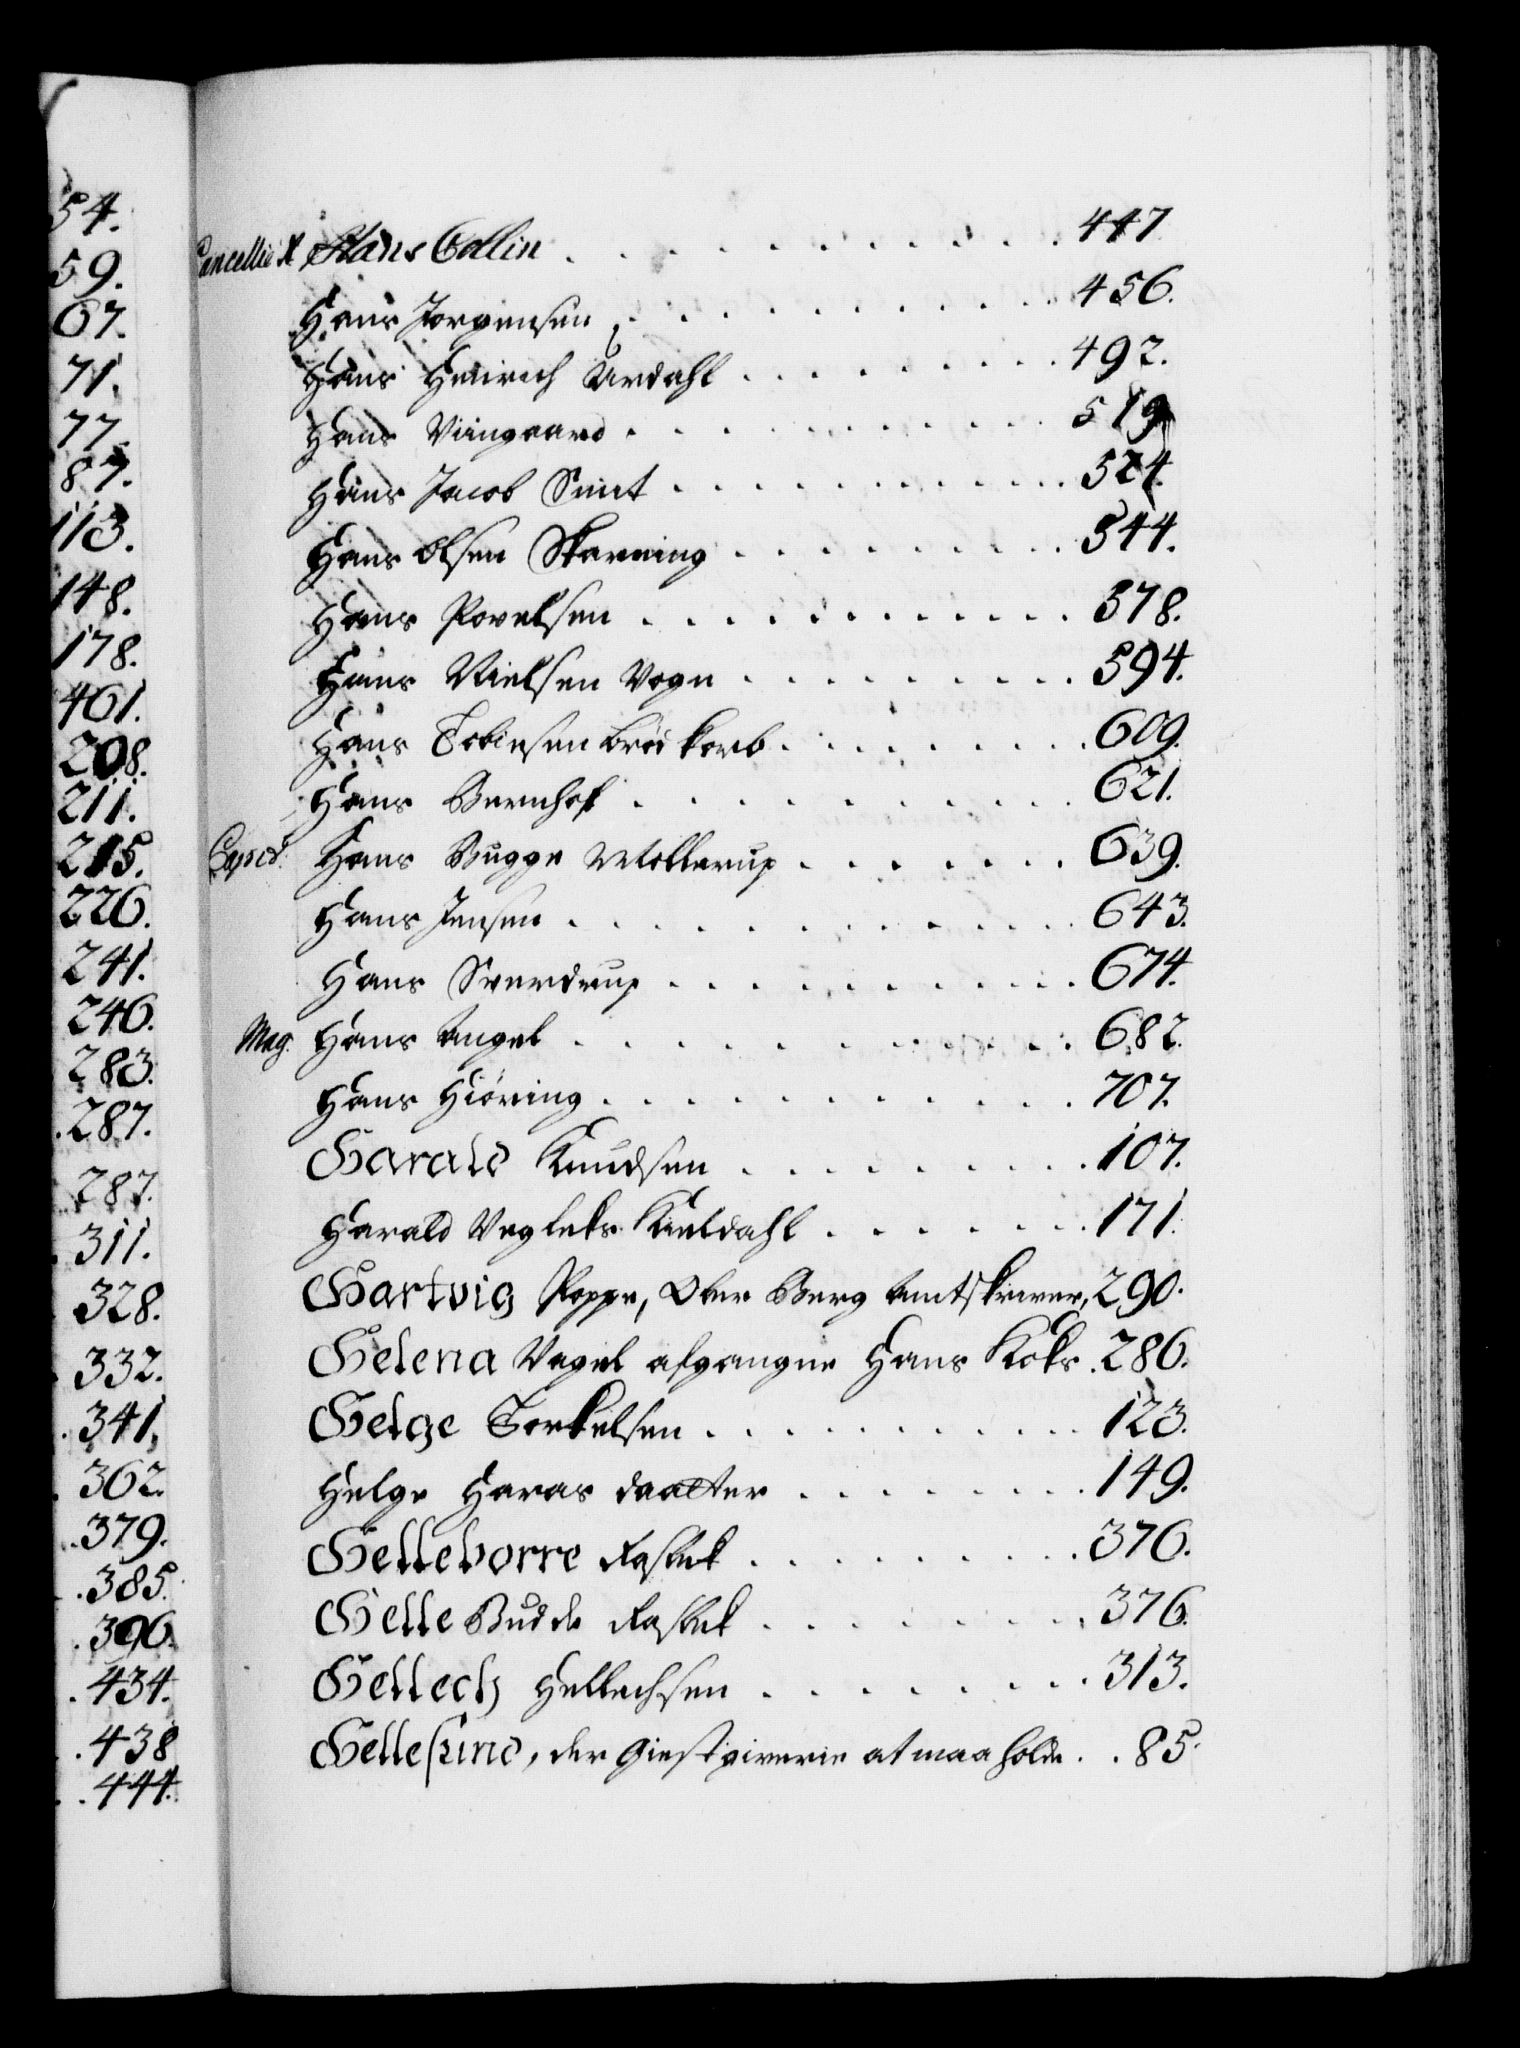 54.
59.
67.
71.
77.
87.
113.
148.
178.
461.
208.
211.
215.
226.
241.
246.
283.
.287.
287.
.311.
.328.
332.
.341.
.362.
.379.
.385.
.396.
.434.
.438
.444.
Cancellie R Hans Collin . . . . . . . . . . 447
Hans Jørgensen . . . . . . . . . . 456.
Hans Henrich Urdahl . . . . . . . . 492.
Hans Viingaard . . . . . . . . . . 519
Hans Jacob Smit . . . . . . . . . . 524.
Hans Olsen Skarning . . . . . . . . 544.
Hans Povelsen . . . . . . . . . . 578.
Hans Nielsen Vogn . . . . . . . . 594.
Hans Tobiesen Brødkorb . . . . . . . . 609.
Hans Bernhoft . . . . . . . . . . 621.
Hans Bugge Møllerup . . . . . . . 639.
Hans Jensen . . . . . . . . . . . 643.
Hans Sverdrup . . . . . . . . . . 674.
Mag. Hans Angel . . . . . . . . . . 682.
Hans Hiøring . . . . . . . . . . 707.
Harald Knudsen . . . . . . . . 107.
Harald Kieldahl . . . . . . . 171.
Hartvig Poppe, Ober Berg Amtskriver, 290.
Helena Vegel afgangne Hans Koks . 286.
Helge Torkelsen . . . . . . . . . . 123.
Helge Haras daatter . . . . . . . . 149.
Helleborre . . . . . . . . 376.
Helle Budde . . . . . . . 376.
Hellech Hellechsen . . . . . . . 313.
Hellesund, der Giestgiverie at maa holde . . 85.